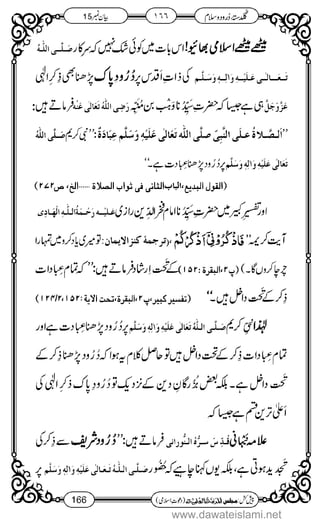 بیان نمبر15
١٦٦
گلدستۂ درود و سلام
میٹھے میٹھے اسلامی بھائیو! اس بات میں کوئی شک نہیں کہ سرکار صَلَّی اللّٰہُ
تَعَالٰی عَلَیْہِ وَاٰلِہٖ وَسَلَّم کی ذاتِ اَقدس پر دُرُودِ پاک پڑھنا بھی ذِکرِ الٰہی
عَزَّوَجَلَّ ہی ہے جیسا کہ حضرتِ سَیِّدُنا وَہب بن مُنَبِّہ رَضِیَ اللّٰہُ تَعَالٰی عَنْہُ فرماتے ہیں:
’’اَلصَّلَاۃُ عَلَی النَّبِیِّ صَلَّی اللّٰہُ تَعَالٰی عَلَیْہِ وَسَلَّمَ عِبَادَۃٌ‘‘: نبی کریم صَلَّی اللّٰہُ
تَعَالٰی عَلَیْہِ وَاٰلِہٖ وَسَلَّم پر دُرُود پڑھنا عبادت ہے۔‘‘
(القول البدیع،الباب الثانی فی ثواب الصلاۃ ......الخ، ص٢٧٢)
اور تفسیرِ کبیر میں حضرتِ سَیِّدُنا امام فخرُ الدِّین رازی عَلَیْہِ رَحْمَۃُ اللّٰہِ الْہَادِی
آیتِ کریمہ ’’فَاذْكُرُوْنِیْۤ اَذْكُرْكُمْ (ترجمۂ کنز الایمان: تو میری یاد کرو میں تمہارا
چرچا کروں گا۔) (پ ٢، البقرة: ١٥٢) کے تَحت اِرشاد فرماتے ہیں: ’’کہ تمام عبادات
ذِکر کے تَحت داخل ہیں۔‘‘ (تفسیر کبیر،پ ٢،البقرة،تحت الایة:١٥٢، ١٢٤/٢)
لہٰذا نبی کریم صَلَّی اللّٰہُ تَعَالٰی عَلَیْہِ وَاٰلِہٖ وَسَلَّم پر دُرُود پڑھنا عبادت ہے اور
تمام عبادات ذِکر کے تَحت داخل ہیں تو حاصلِ کلام یہ ہوا کہ دُرُود پڑھنا ذِکر کے
تَحت داخل ہے۔ بلکہ بعض بُزُرگانِ دین کے نزدیک تو دُرُودِ پاک ذِکرِ الٰہی کی
اعلیٰ ترین قسم ہے جیسا کہ
علامہ نَبْہَانی قُدِّسَ سِرُّہُ النُّورَانی فرماتے ہیں: ’’دُرُود شریف سے ذِکر کی
تجدید ہوتی ہے، بلکہ یوں کہنا چاہیے کہ حُضُور صَلَّی اللّٰہُ تَعَالٰی عَلَیْہِ وَاٰلِہٖ وَسَلَّم پر
166
www.dawateislami.net